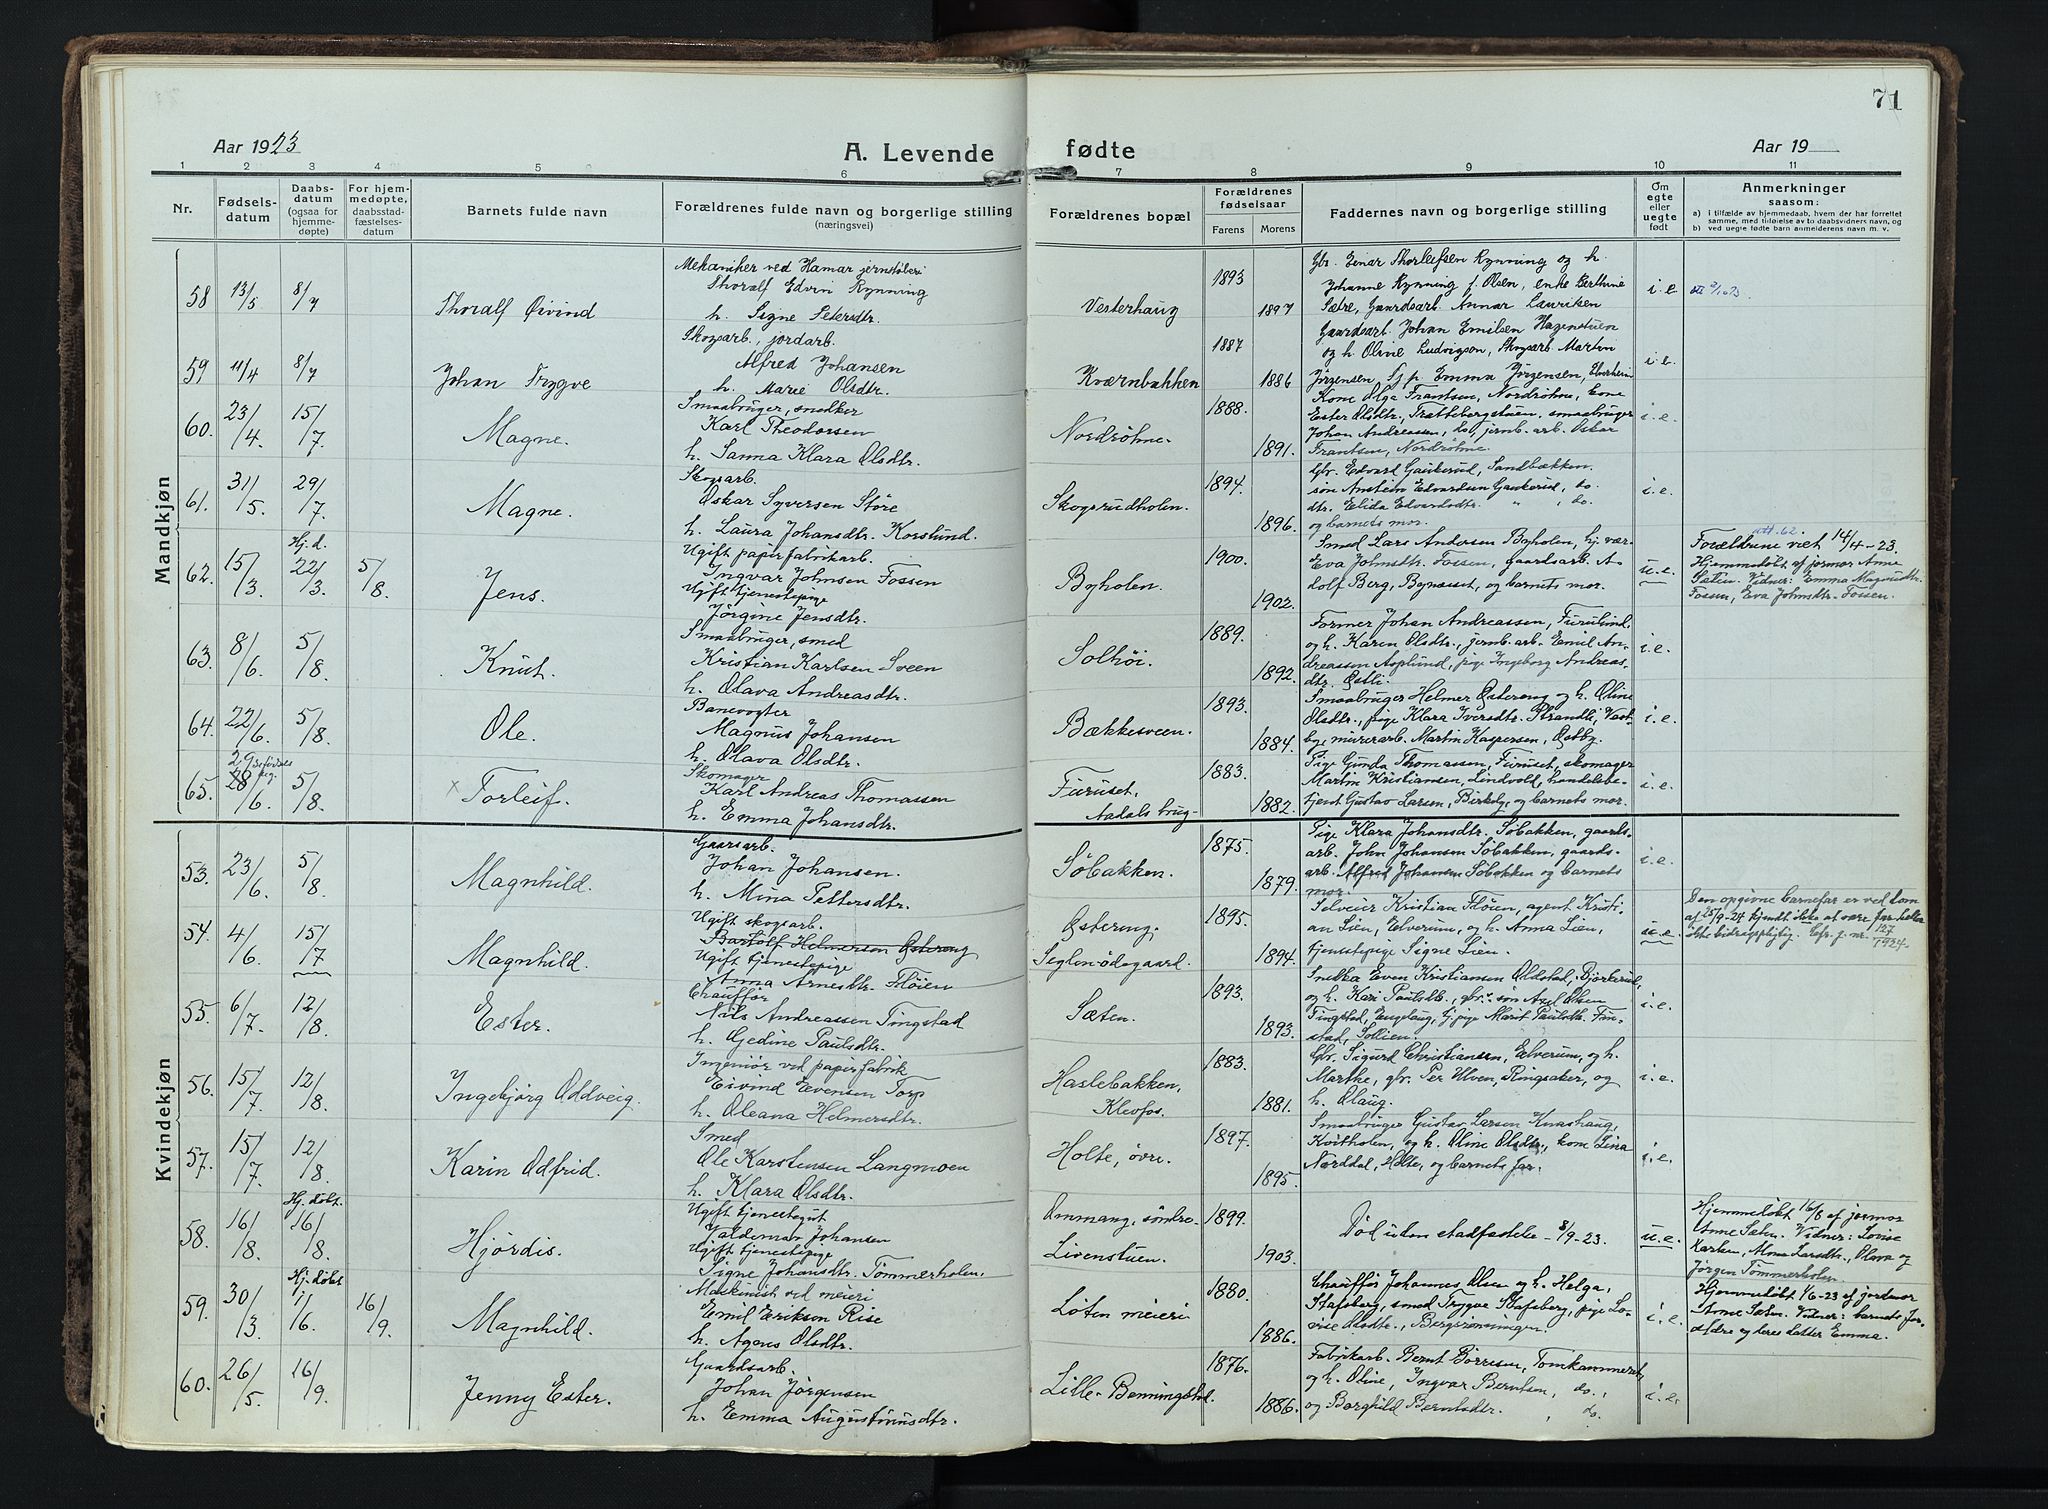 71
Aar 1923 A. Levende fødte Aar 19
1 2 3 4 5 6 7 8 9 10 11
Nr. Fødsels-datum Daabs-datum (ogsaa for hjemme-døpte) For hjem-medøpte, daabsstad-fæstelses-datum Barnets fulde navn Forældrenes fulde navn og borgerlige stilling (næringsvei) Forældrenes bopæl Forældrenes fødselsaar Farens Morens Faddernes navn og borgerlige stilling Om egte eller uegte født Anmerkninger saasom:
a) i tilfælde av hjemmedaab, hvem der har forrettet samme, med tilføielse av to daabsvidners navn, og
b) ved uegte fødte barn anmelderens navn m. v.
Mandkjøn
58 13/5 8/7 Thoralf Øivind
Mekaniker ved Hamar jernstøberi
Thoralf Edvin Rynning
h. Signe Petersdtr.
Vesterhaug 1893 1897
Gbr. Einar Thorleifsen Rynning og h.
Johanne Rynning f. Olsen, enke Berthine
Sætre, Gaardsarb. Annar Lauritsen
i. e.
59 11/4 8/7 Johan Trygve
Skogsarb., jordarb.
Alfred Johansen
h. Marie Olsdtr.
Kværnbakken 1887 1886
Gaardsarb. Johan Emilsen Hagenstuen
og h. Oline Ludvigson, Skogsarb Martin
Jørgensen og p. Emma Jørgensen, Elverheim
i. e.
60. 23/4. 15/7 Magne.
Smaabruger, snedker
Karl Theodorsen
h. Sanna Klara Olsdtr.
Nordrøhne. 1888. 1891.
Kone Olga Frantsen, Nordrøhne, kone
Ester Olsdtr., Trættebergstuen, smaabruger
Johan Andreassen, do, jernb. arb. Oskar
Frantsen, Nordrøhne.
i. e.
61. 31/5. 29/7. Magne.
Skogsarb.
Oskar Syversen Støre
h. Laura Johansdtr. Korslund.
Skogsrudholen. 1894. 1896.
Gbr. Edvard Gaukerud, Sandbækken.
søn Anstein Edvardsen Gaukerud, do.
dtr. Elida Edvardsdtr. " , do.
og barnets mor.
i. e.
62. 15/3. Hj. d. 22/3. 5/8. Jens.
Ugift papirfabrikarb.
Ingvar Johnsen Fossen
Ugift tjenestepige
Jørgine Jensdtr.
Byholen. 1900. 1902.
Smed Lars Andersen Byholen, hj. vær.
Eva Johnsdtr. Fossen, gaardsarb. A-
dolf Berg, Bypasset, og barnets mor.
u. e.
Forældrene viet 14/4-23.
Hjemmedøbt af jormor Anne
Sæten. Vidner: Emma Magnusdtr.
Fossen, Eva Johnsdtr. Fossen.
63. 8/6. 5/8. Knut.
Smaabruger, smed
Kristian Karlsen Sveen
h. Olava Andreasdtr.
Solhøi. 1889. 1892.
Former Johan Andreassen, Furulund,
og h. Karen Olsdtr., jernb. arb. Emil An-
dreassen Asplund, pige Ingeborg Andreas-
dtr. Østli.
i. e.
64. 22/6. 5/8. Ole.
Banevogter
Magnus Johansen
h. Olava Olsdtr.
Bækkesveen. 1893. 1884.
Smaabruger Helmer Østereng og h. Oline
Olsdtr., pige Klara Iversdtr. Strandli, Vest-
by, murerarb. Martin Kaspersen, Østby.
i. e.
65. 29 28/6. 5/8. x Torleif.
Skomager
Karl Andreas Thomassen
h. Emma Johansdtr.
Furuset, Aadals brug. 1883. 1882.
Pige Gunda Thomassen, Furuset, skomager
Martin Kristiansen, Lindvold, handelsbe-
tjent Gustav Larsen, Birkely, og barnets mor.
i. e.
Kvindekjøn
53. 23/6. 5/8. Magnhild.
Gaarsarb.
Johan Johansen.
h. Mina Pettersdtr.
Søbakken. 1875. 1879.
Pige Klara Johansdtr. Søbakken, gaards-
arb. John Johansen Søbakken, gaards-
arb. Alfred Johansen Søbakken og barnets
mor.
i. e.
54. 4/6. 15/7 Magnhild.
Ugift skogsarb.
Bartolf Helmersen Østereng
Ugift tjenestepige
Anna Arnesdtr. Fløien
Østereng. Seglen-ødegaard. 1895. 1894.
Selveier Kristian Fløien, agent Kristi-
an Lien, Elverum, og h. Anna Lien,
tjenestepige Signe Lien.
u. e.
Den opgivne barnefar er ved dom
af 25/9-24 kjendt ikke at være far heller
ikke bidragspligtig. Cfr. j. nr. 127/1924.
55. 6/7. 12/8. Ester.
Chauffør
Nils Andreassen Tingstad
h. Gedine Paulsdtr.
Sæten. 1893. 1893.
Snekker Even Kristiansen Oldstad, Bjørkerud,
og h. Kari Paulsdtr., gbr. søn Axel Olsen
Tingstad, Engelaug, gj. pige Marit Paulsdtr. Fin-
stad, Sollien.
i. e.
56. 15/7. 12/8. Ingebjørg Oddveig.
Ingeniør ved papirfabrik
Eivind Evensen Torp
h. Oleana Helmersdtr.
Haslebakken, Klevfos. 1883. 1881.
Gbr. Sigurd Christiansen, Elverum, og h.
Marthe, gbr. Per Ulven, Ringsaker, og
h. Olaug.
i. e.
57. 15/7. 12/8. Karin Odfrid.
Smed
Ole Karstensen Langmoen
h. Klara Olsdtr.
Holte, øvre. 1897. 1895.
Smaabruger Gustav Larsen Knashaug,
Kvitholen, og h. Oline Olsdtr., kone Lina
Nørddal, Holte, og barnets far.
i. e.
58. 16/8. Hj. døbt. 16/8. Hjørdis.
Ugift tjenestegut
Valdemar Johansen
Ugift tjenestepige
Signe Johansdtr. Tømmerholen.
Ommang, søndre. Livenstuen. 1899. 1903.
Død uten stadfæstelse 8/9-23.
u. e.
Hjemmedøbt 16/8 af jormor
Anne Sæten. Vidner: Lovise
Karlsen, Alma Larsdtr., Olava og
Jørgen Tømmerholen.
59. 30/3. Hj. døbt 1/6. 16/9. Magnhild.
Maskinist ved meieri
Emil Eriksen Rise
h. Agnes Olsdtr.
Løten meieri 1880. 1886.
Chauffør Johannes Olsen og h. Helga,
Stafsberg, smed Trygve Stafsberg, pige Lo-
vise Olsdtr., Bergsrønningen.
i. e.
Hjemmedøbt 1/6-23 af jordmor
Anne Sæten. Vidner: barnets for-
ældre og deres datter Emma.
60. 26/5. 16/9. Jenny Ester.
Gaardsarb.
Johan Jørgensen
h. Emma Augustinusdtr.
Lille-Benningstad. 1876. 1886.
Fabrikarb. Bernt Børresen, Tomkammeret,
og h. Oline, Ingvar Berntsen, do.,
og Borghild Berntsdtr. , do.
i. e.